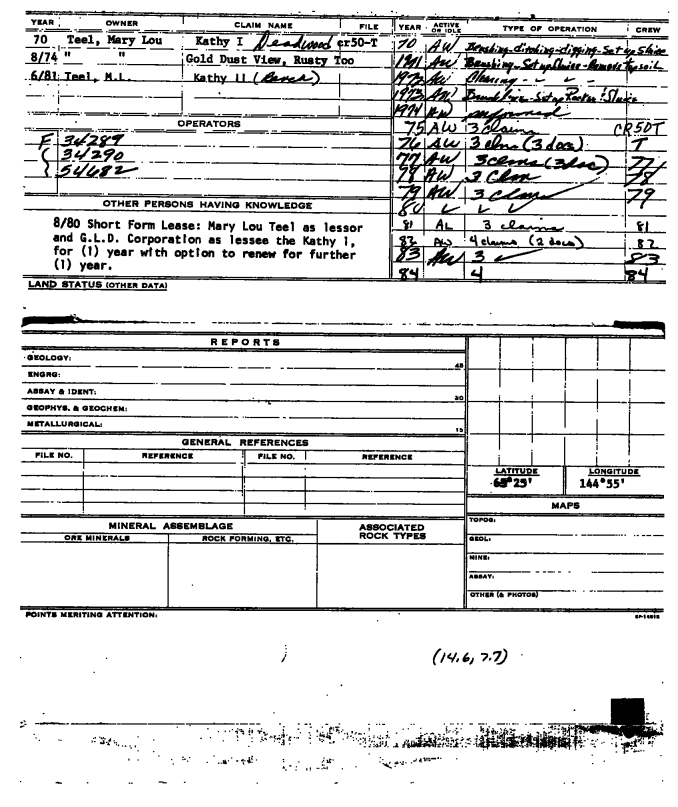 YEAR OWNER CLAIM NAME FILE
70 Teel, Mary Lou Kathy I Deadwood cr50-T
8/74 " " Gold Dust View, Rusty Too
6/81 Teel, M.L. Kathy II (Bench)
OPERATORS
F 34289
34290
54682
OTHER PERSONS HAVING KNOWLEDGE
8/80 Short Form Lease: Mary Lou Teel as lessor
and G.L.D. Corporation as lessee the Kathy I,
for (1) year with option to renew for further
(1) year.
LAND STATUS (OTHER DATA)
YEAR ACTIVE OR IDLE TYPE OF OPERATION CREW
70 AW Brushing-ditching-digging-Set up Sluice
1971 AW Brushing-Set up Sluice-Remove Topsoil
1972 AW
1973 AW Sluice
1974 AW
75 AW 3 claims CR50T
76 AW 3 clms (3 docs) T
77 AW 3 clms (3 doc) 77
78 AW 3 Clm 78
79 AW 3 Clams 79
80 ✓ ✓ ✓
81 AL 3 claims 81
82 AW 4 claims (2 docs) 82
83 AW 3 ✓ 83
84 4 84
REPORTS
GEOLOGY:
ENGRG:
45
ASSAY & IDENT:
30
GEOPHYS. & GEOCHEM:
METALLURGICAL:
15
GENERAL REFERENCES
FILE NO. REFERENCE FILE NO. REFERENCE
LATITUDE LONGITUDE
65°25' 144°55'
MAPS
MINERAL ASSEMBLAGE ASSOCIATED ROCK TYPES
ORE MINERALS ROCK FORMING, ETC.
TOPOG:
GEOL:
MINE:
ASSAY:
OTHER (& PHOTOS)
POINTS MERITING ATTENTION:
(14.6, 7.7)